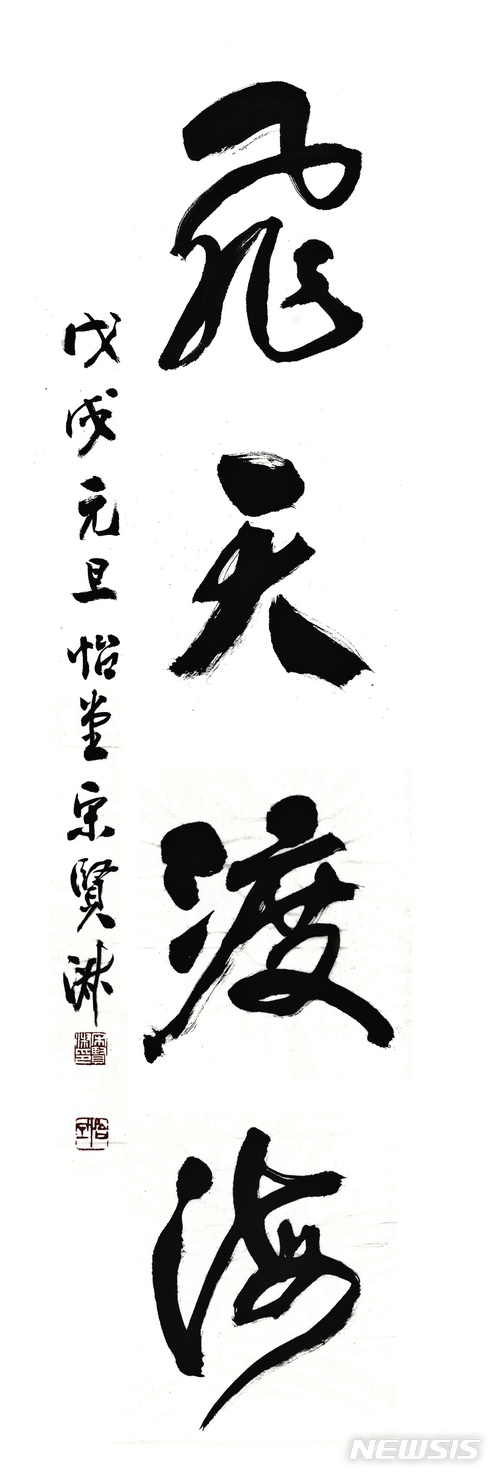 飛天渡海
戊戌元旦 怡堂 宋賢淋
NEWSIS